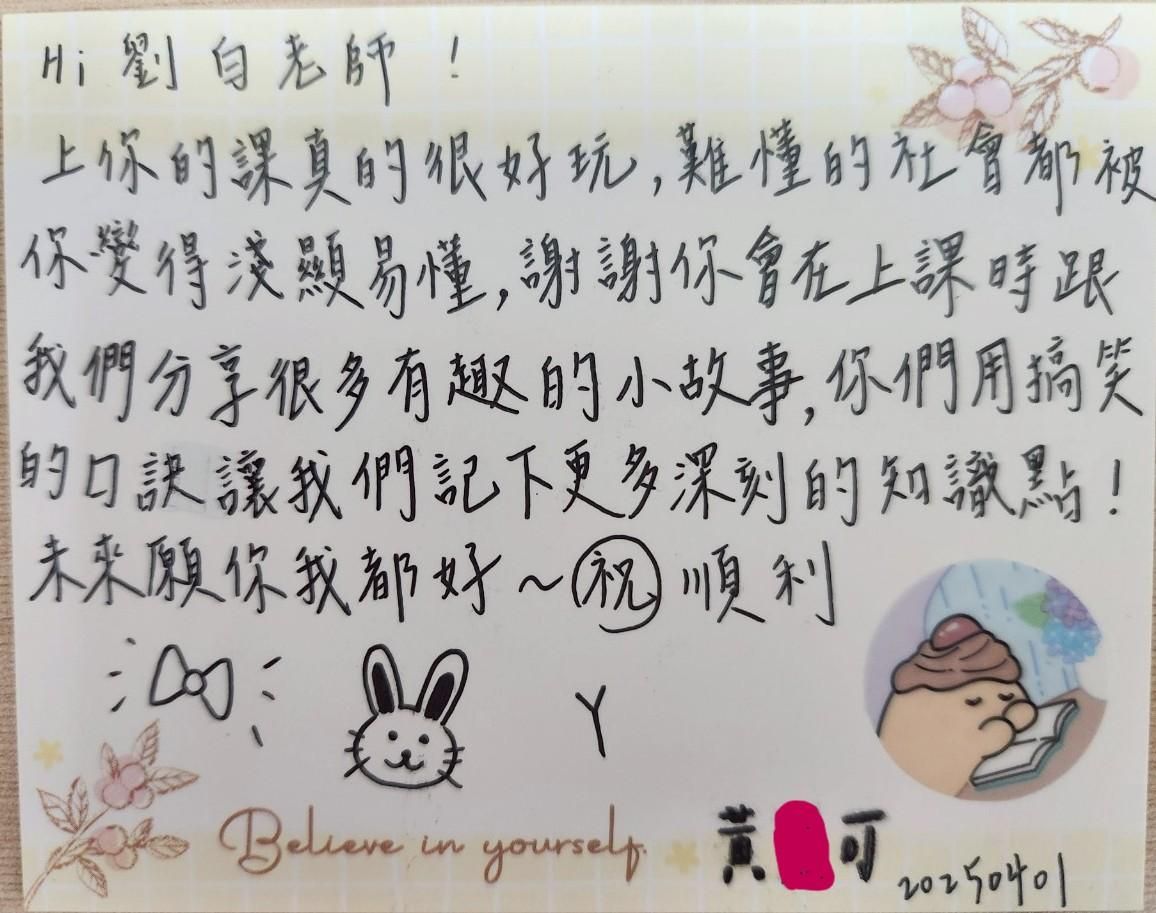 Hi 劉白老師！
上你的課真的很好玩,難懂的社會都被
你變得淺顯易懂,謝謝你會在上課時跟
我們分享很多有趣的小故事,你們用搞笑
的口訣讓我們記下更多深刻的知識點！
未來願你我都好～祝 順利
Y
Believe in yourself.
黃 可
20250401